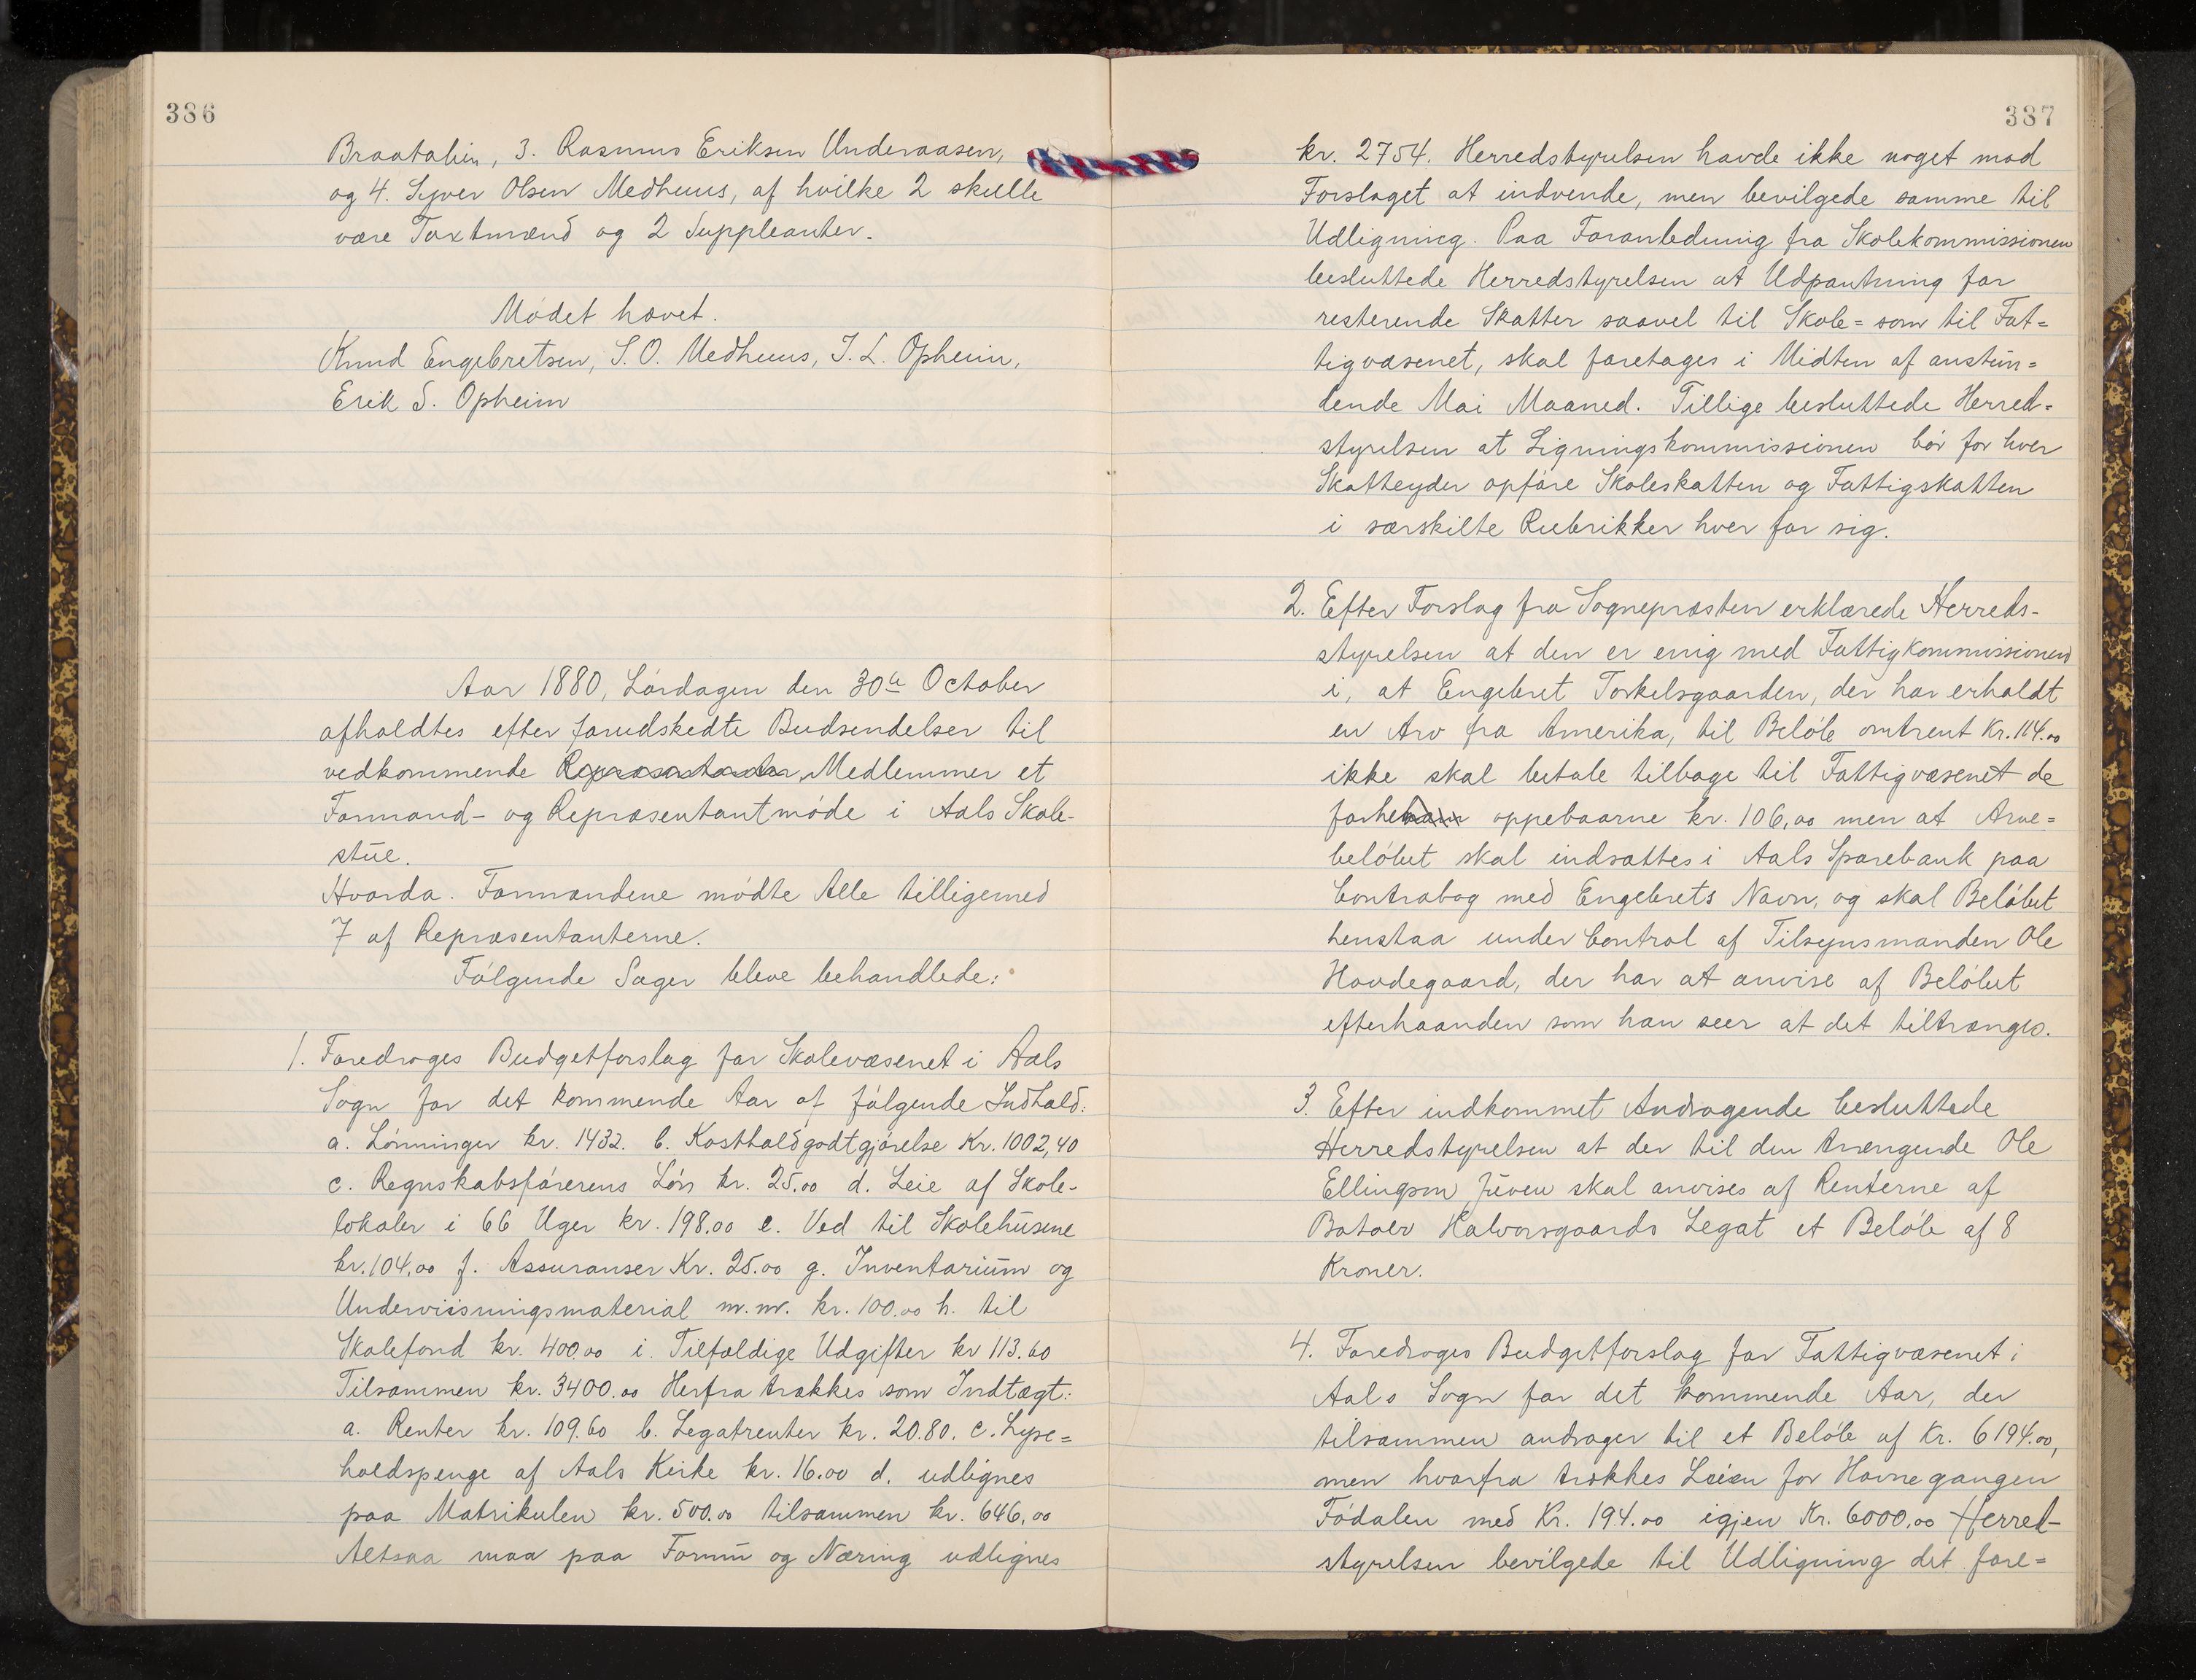 386
Braatalien, 3. Rasmus Eriksen Underaasen,
og 4. Syver Olsen Medhuus, af hvilke 2 skulle
være Taxtmænd og 2 Suppleanter.
Mödet hævet.
Knud Engebretsen, S. O. Medhuus, T. L. Opheim,
Erik S. Opheim
Aar 1880, Lördagen den 30te October
afholdtes efter forudskedte Budsendelser til
vedkommende Repræsentanter, Medlemmer et
Formand- og Repræsentantmöde i Aals Skole-
stue.
Hvorda. Formændene mödte Alle tilligemed
7 af Repræsentanterne.
Fölgende Sager bleve behandlede:
1. Foredroges Budgetforslag for Skolevæsenet i Aals
Sogn for det kommende Aar af fölgende Indhold:
a. Lönninger kr. 1432. b. Kostholdgodtgjörelse Kr. 1002,40
c. Regnskabsförerens Lön kr. 25.00 d. Leie af Skole-
lokaler i 66 Uger kr. 198.00 e. Ved til Skolehusene
kr. 104,00 f. Assuranser Kr. 25.00 g. Inventarium og
Underviisningsmaterial m.m. kr. 100.00 h. til
Skolefond kr. 400.00 i. Tilfældige Udgifter kr 113.60
Tilsammen kr. 3400.00 Herfra trækkes som Indtægt:
a. Renter kr. 109.60 b. Legatrenter kr. 20.80. c. Lyse=
holdspenge af Aals Kirke kr. 16.00 d. udlignes
paa Matrikulen kr. 500.00 tilsammen kr. 646,00
Altsaa maa paa Formü og Næring udlignes
387
kr. 2754. Herredstyrelsen havde ikke noget mod
Forslaget at indvende, men bevilgede samme til
Udligning. Paa Foranledning fra Skolekommissionen
besluttede Herredstyrelsen at Udpantning for
resterende Skatter saavel til Skole= som til Fat=
tigvæsenet, skal foretages i Midten af anstun=
dende Mai Maaned. Tillige besluttede Herred=
styrelsen at Ligningskommissionen bör for hver
Skatteyder opföre Skoleskatten og Fattigskatten
i særskilte Rubrikker hver for sig.
2. Efter Forslag fra Sognepræsten erklærede Herreds-
styrelsen at den er enig med Fattigkommissionen
i, at Engebret Torkelsgaarden, der har erholdt
en Arv fra Amerika, til Belöb omtrent Kr. 114.00
ikke skal betale tilbage til Fattigvæsenet de
forhen oppebaarne kr. 106,00 men at Arve=
belöbet skal indsættes i Aals Sparebank paa
Contrabog med Engebrets Navn, og skal Belöbet
henstaa under Control af Tilsynsmanden Ole
Hovdegaard, der har at anvise af Belöbet
efterhaanden som han seer at det tiltrænges.
3. Efter indkommet Andragende besluttede
Herredstyrelsen at der til den trængende Ole
Ellingsen Juven skal anvises af Renterne af
Botolv Halvorsgaards Legat et Belöb af 8
Kroner.
4. Foredroges Budgetforslag for Fattigvæsenet i
Aals Sogn for det kommende Aar, der
tilsammen andrager til et Belöb af Kr. 6194.00,
men hvorfra trækkes Leien for Havnegangen
Födalen med Kr. 194.00 igjen Kr. 6000,00 Herred-
styrelsen bevilgede til Udligning det fore=